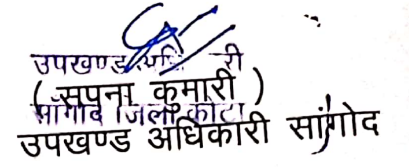 उपखण्ड अधि री
( सपना कुमारी )
सांगोद जिला कोटा
उपखण्ड अधिकारी सांगोद